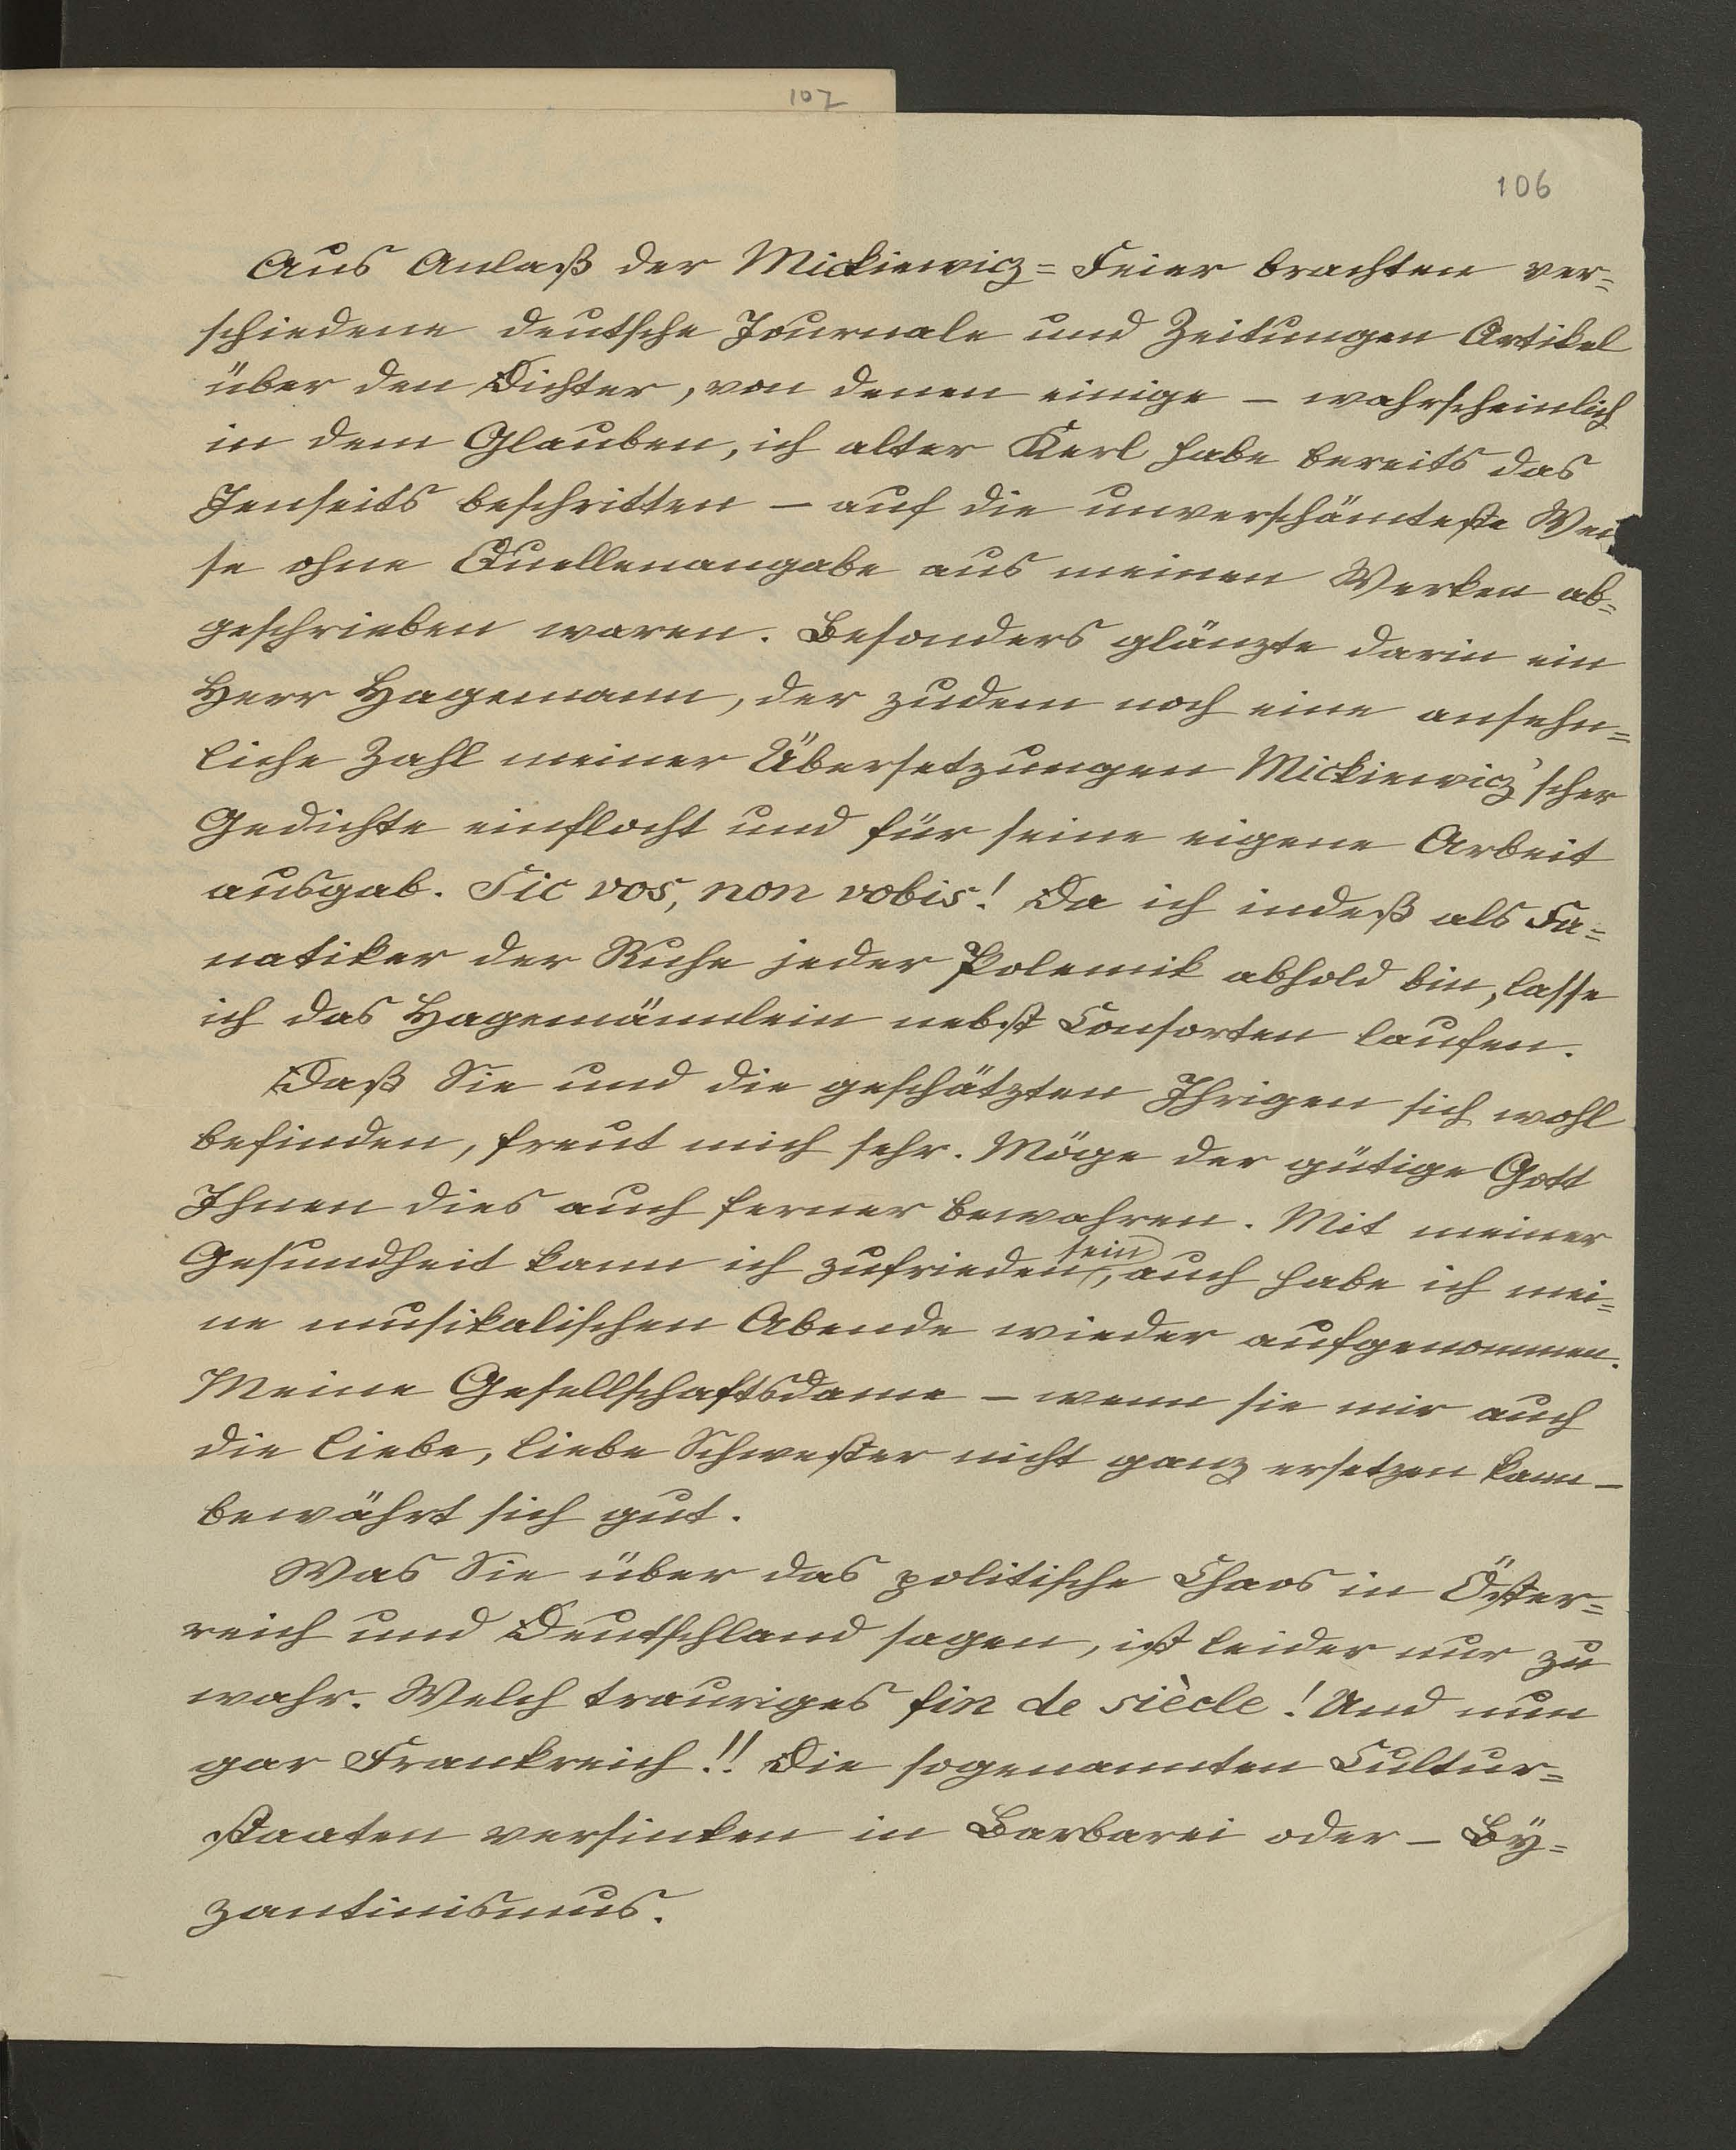 107
106
Aus Anlaß der Mickiewicz=Feier brachten ver=
schiedene deutsche Journale und Zeitungen Artikel
über den Dichter, von denen einige – wahrscheinlich
in dem Glauben, ich alter Kerl habe bereits das
Jenseits beschritten – auf die unverschämteste Wei
se ohne Quellenangabe aus meinen Werken ab=
geschrieben waren. Besonders glänzte darin ein
Herr Hagemann, der zudem noch eine ansehn=
liche Zahl meiner Übersetzungen Mickiewicz'scher
Gedichte einflocht und für seine eigene Arbeit
ausgab. Sic vos, non vobis! Da ich indeß als Fa=
natiker der Ruhe jeder Polemik abhold bin, lasse
ich das Hagemännlein nebst Consorten laufen.
Daß Sie und die geschätzten Ihrigen sich wohl
befinden, freut mich sehr. Möge der gütige Gott
Ihnen dies auch ferner bewahren. Mit meiner
Gesundheit kann ich zufrieden sein, auch habe ich mei=
ne musikalischen Abende wieder aufgenommen.
Meine Gesellschaftsdame – wenn sie mir auch
die liebe, liebe Schwester nicht ganz ersetzen kann –
bewährt sich gut.
Was Sie über das politische Chaos in Öster=
reich und Deutschland sagen, ist leider nur zu
wahr. Welch trauriges fin de siècle! Und nun
gar Frankreich!! Die sogenannten Cultur=
staaten versinken in Barbarei oder – By=
zantinismus.